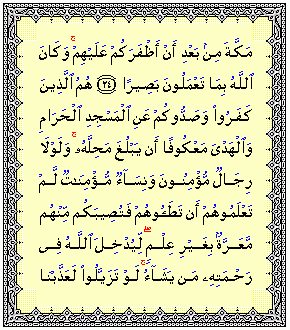 مَكَّةَ مِنۢ بَعْدِ أَنْ أَظْفَرَكُمْ عَلَيْهِمْ ۚ وَكَانَ
ٱللَّهُ بِمَا تَعْمَلُونَ بَصِيرًا ﴿٢٤﴾ هُمُ ٱلَّذِينَ
كَفَرُوا۟ وَصَدُّوكُمْ عَنِ ٱلْمَسْجِدِ ٱلْحَرَامِ
وَٱلْهَدْىَ مَعْكُوفًا أَن يَبْلُغَ مَحِلَّهُۥ ۚ وَلَوْلَا
رِجَالٌ مُّؤْمِنُونَ وَنِسَآءٌ مُّؤْمِنَـٰتٌ لَّمْ
تَعْلَمُوهُمْ أَن تَطَـُٔوهُمْ فَتُصِيبَكُم مِّنْهُم
مَّعَرَّةٌۢ بِغَيْرِ عِلْمٍ ۖ لِّيُدْخِلَ ٱللَّهُ فِى
رَحْمَتِهِۦ مَن يَشَآءُ ۚ لَوْ تَزَيَّلُوا۟ لَعَذَّبْنَا